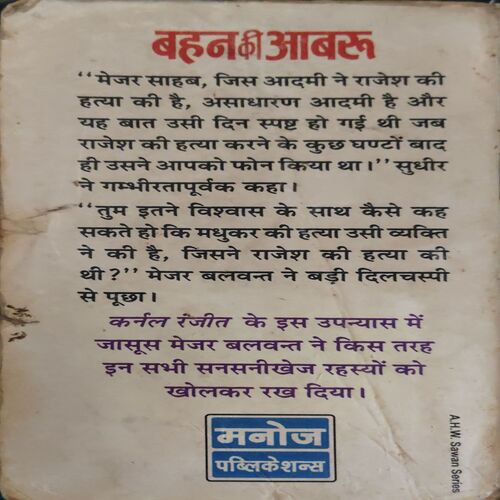 बहन की आबरू
‘‘मेजर साहब, जिस आदमी ने राजेश की
हत्या की है, असाधारण आदमी है और
यह बात उसी दिन स्पष्ट हो गई थी जब
राजेश की हत्या करने के कुछ घण्टों बाद
ही उसने आपको फोन किया था।’’ सुधीर
ने गम्भीरतापूर्वक कहा।
‘‘तुम इतने विश्वास के साथ कैसे कह
सकते हो कि मधुकर की हत्या उसी व्यक्ति
ने की है, जिसने राजेश की हत्या की
थी?’’ मेजर बलवन्त ने बड़ी दिलचस्पी
से पूछा।
कर्नल रंजीत के इस उपन्यास में
जासूस मेजर बलवन्त ने किस तरह
इन सभी सनसनीखेज रहस्यों को
खोलकर रख दिया।
मनोज
पब्लिकेशन्स
A.H.W. Sawan Series